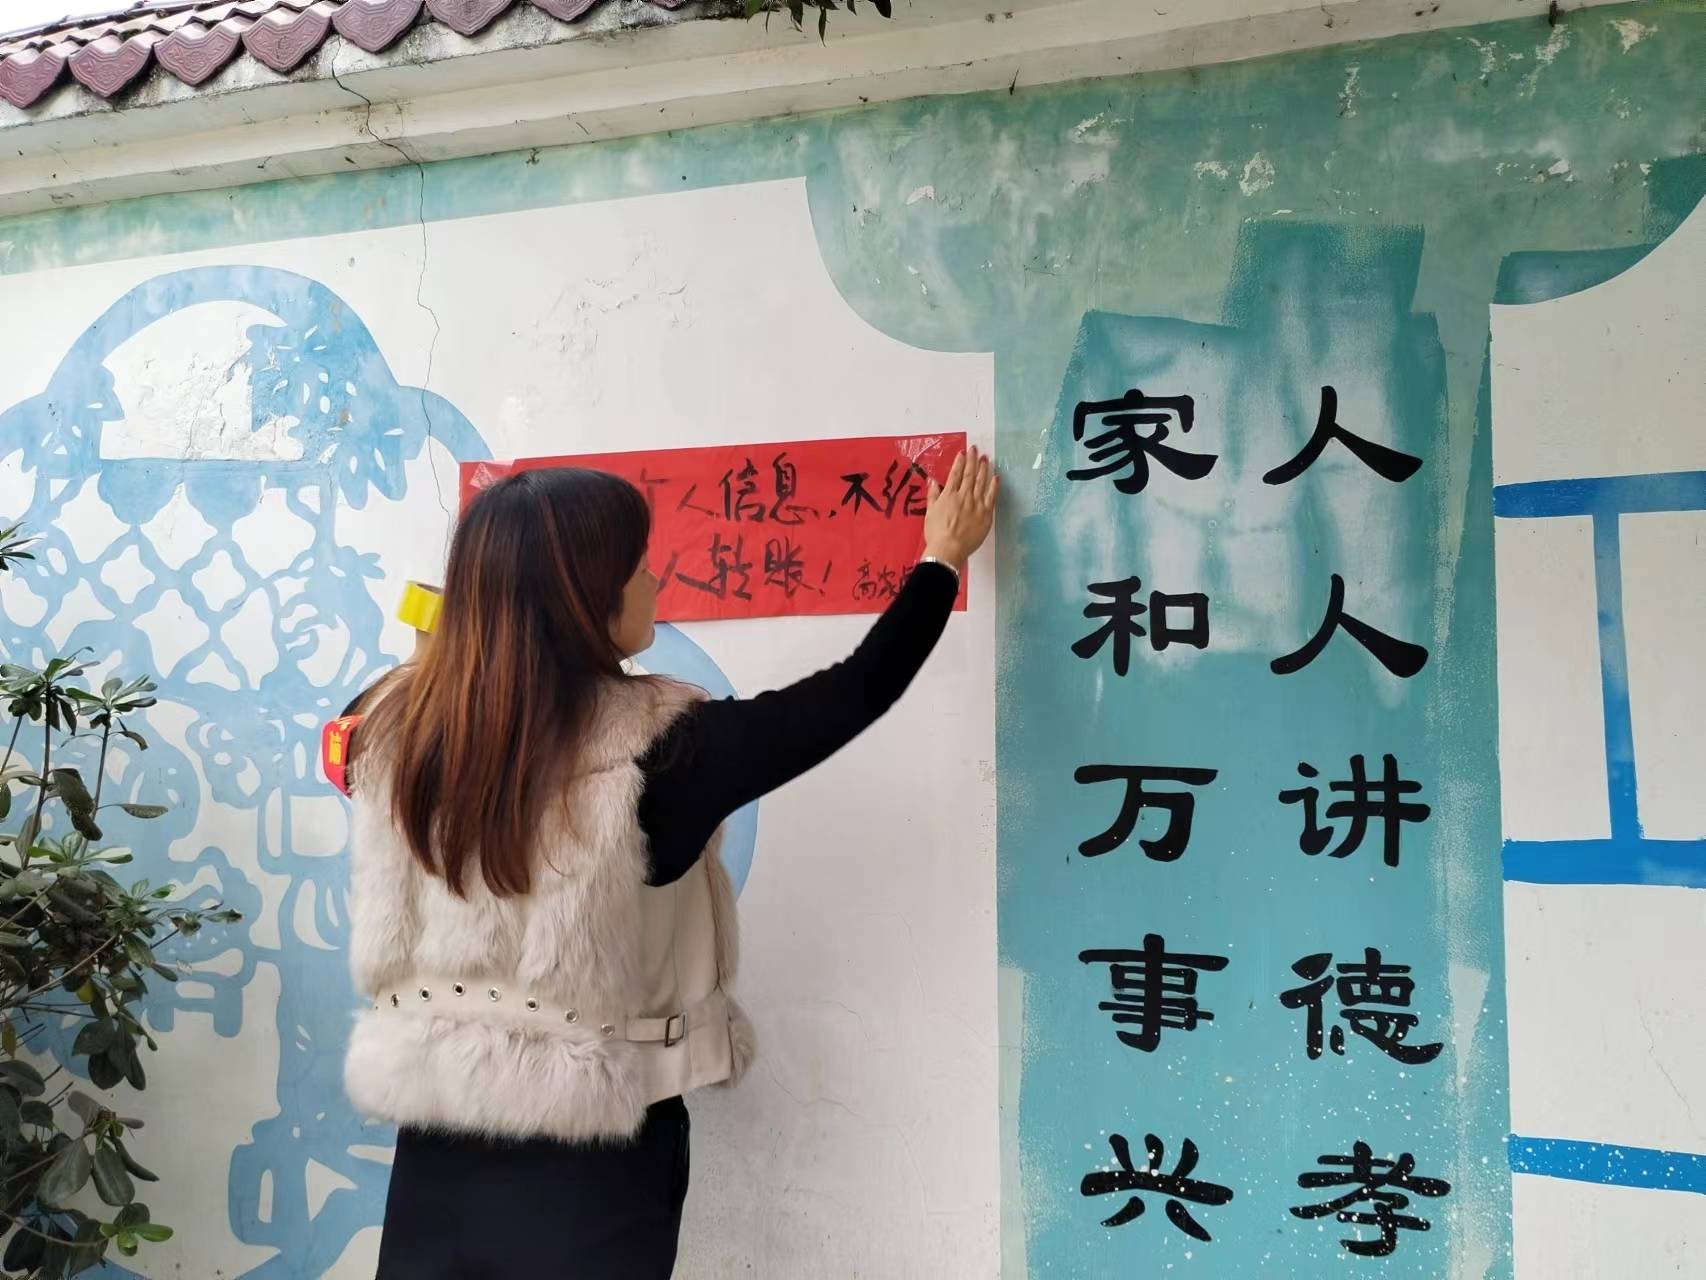 个人信息,不给
人转账!
高家
人人讲德孝
家和万事兴